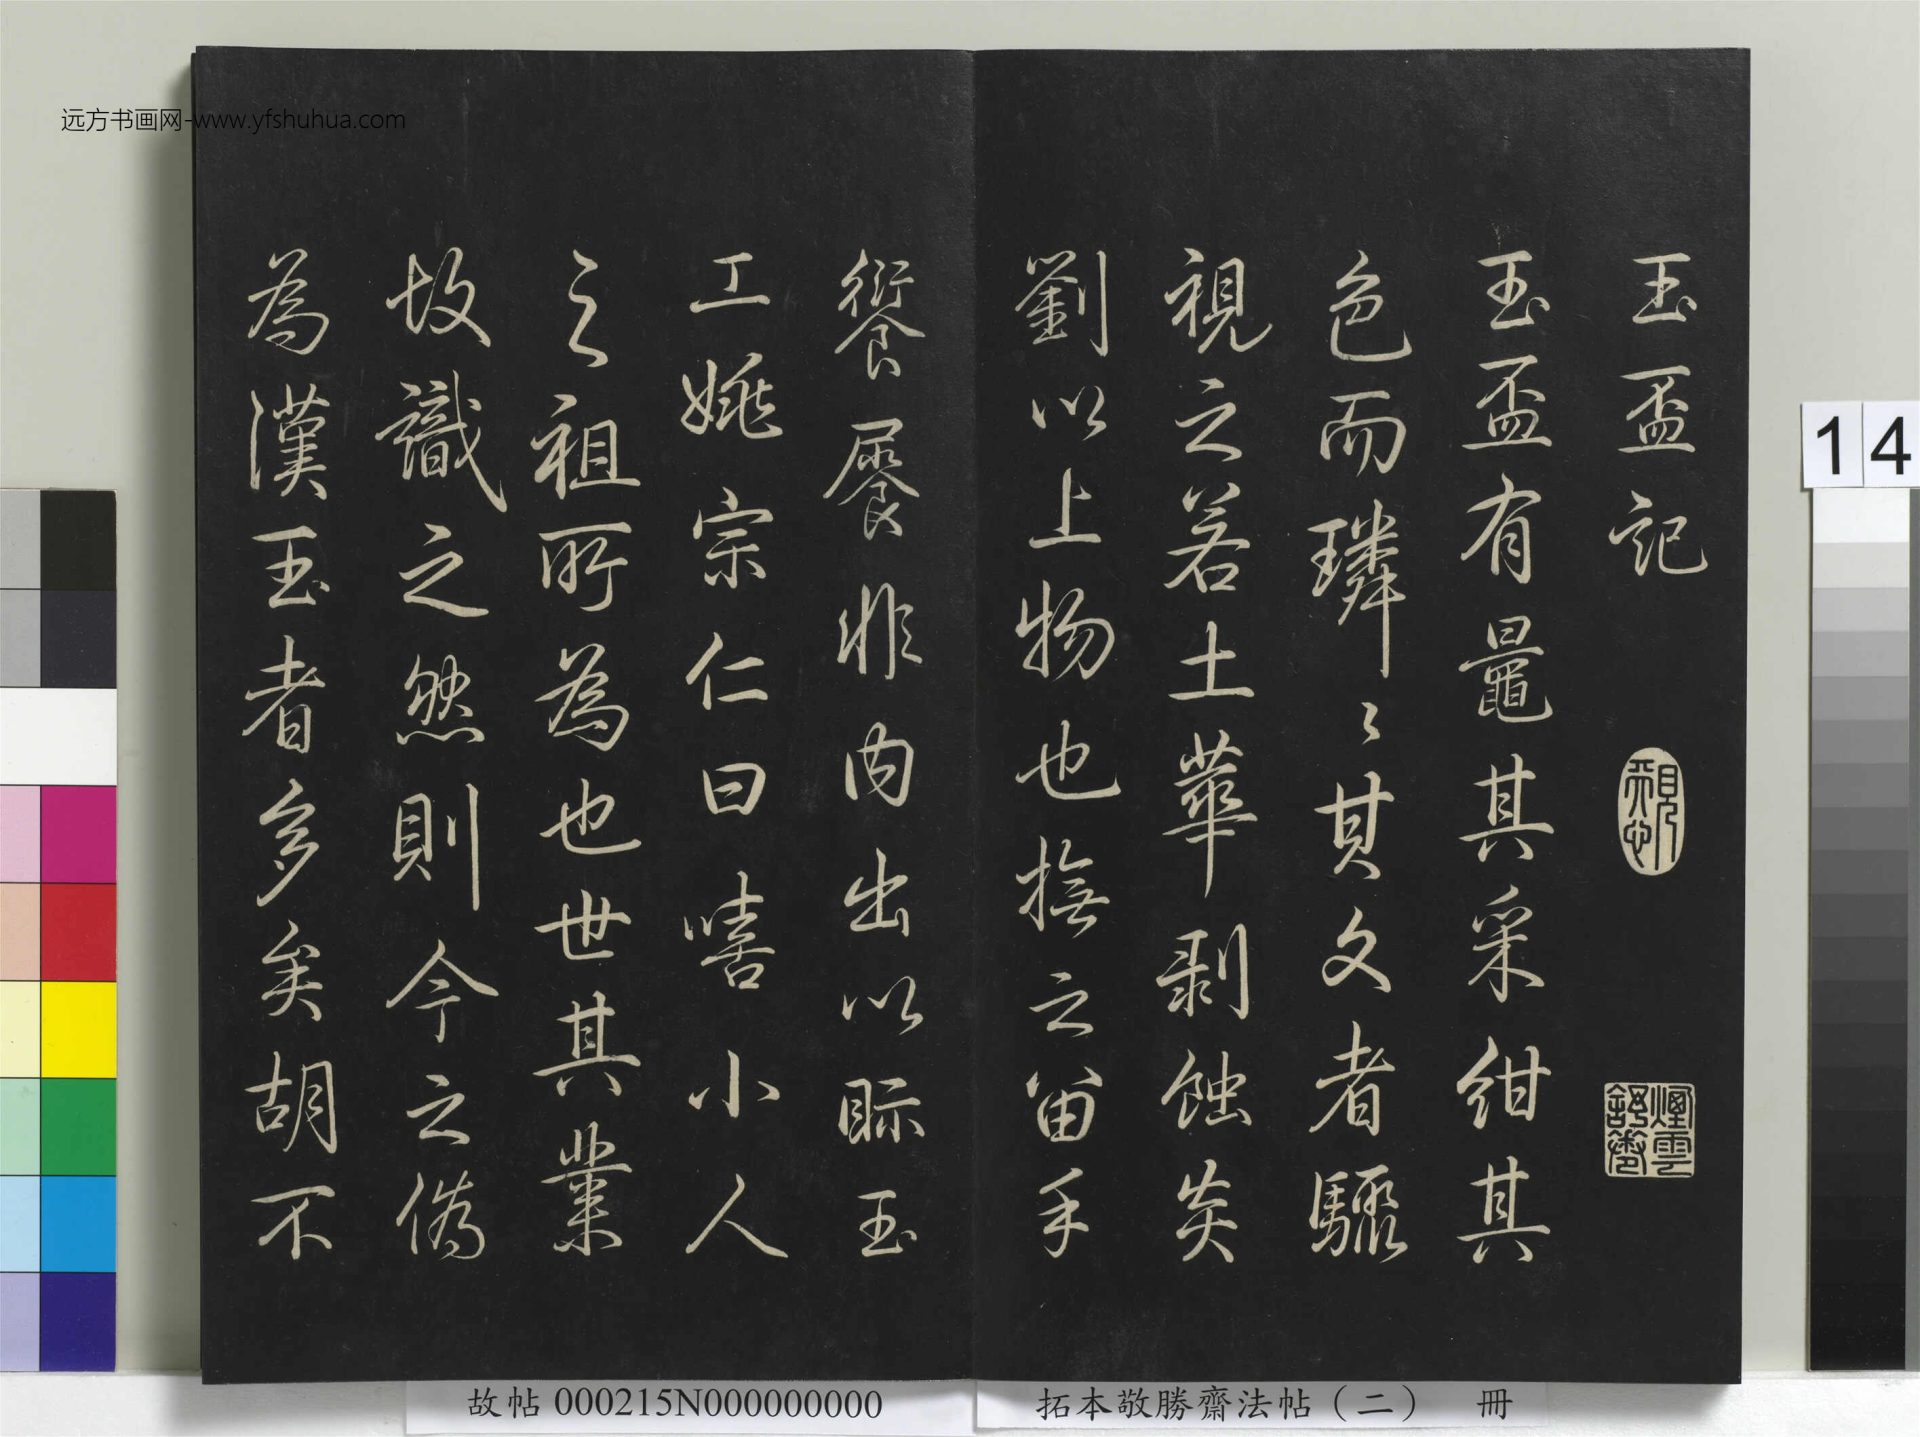 玉盃記
玉盃有鼂其采紺其
色而璘〻其文者驟
視之若土華剝蝕炎
劉以上物也撫之留手
餥餍非內出以眎玉
工姚宗仁曰嘻小人
之祖所為也世其業
故識之然則今之偽
為漢玉者多矣胡不
煙雲舒卷
远方书画网-www.yfshuhua.com
14
故帖 000215N000000000
拓本敬勝齋法帖（二） 冊